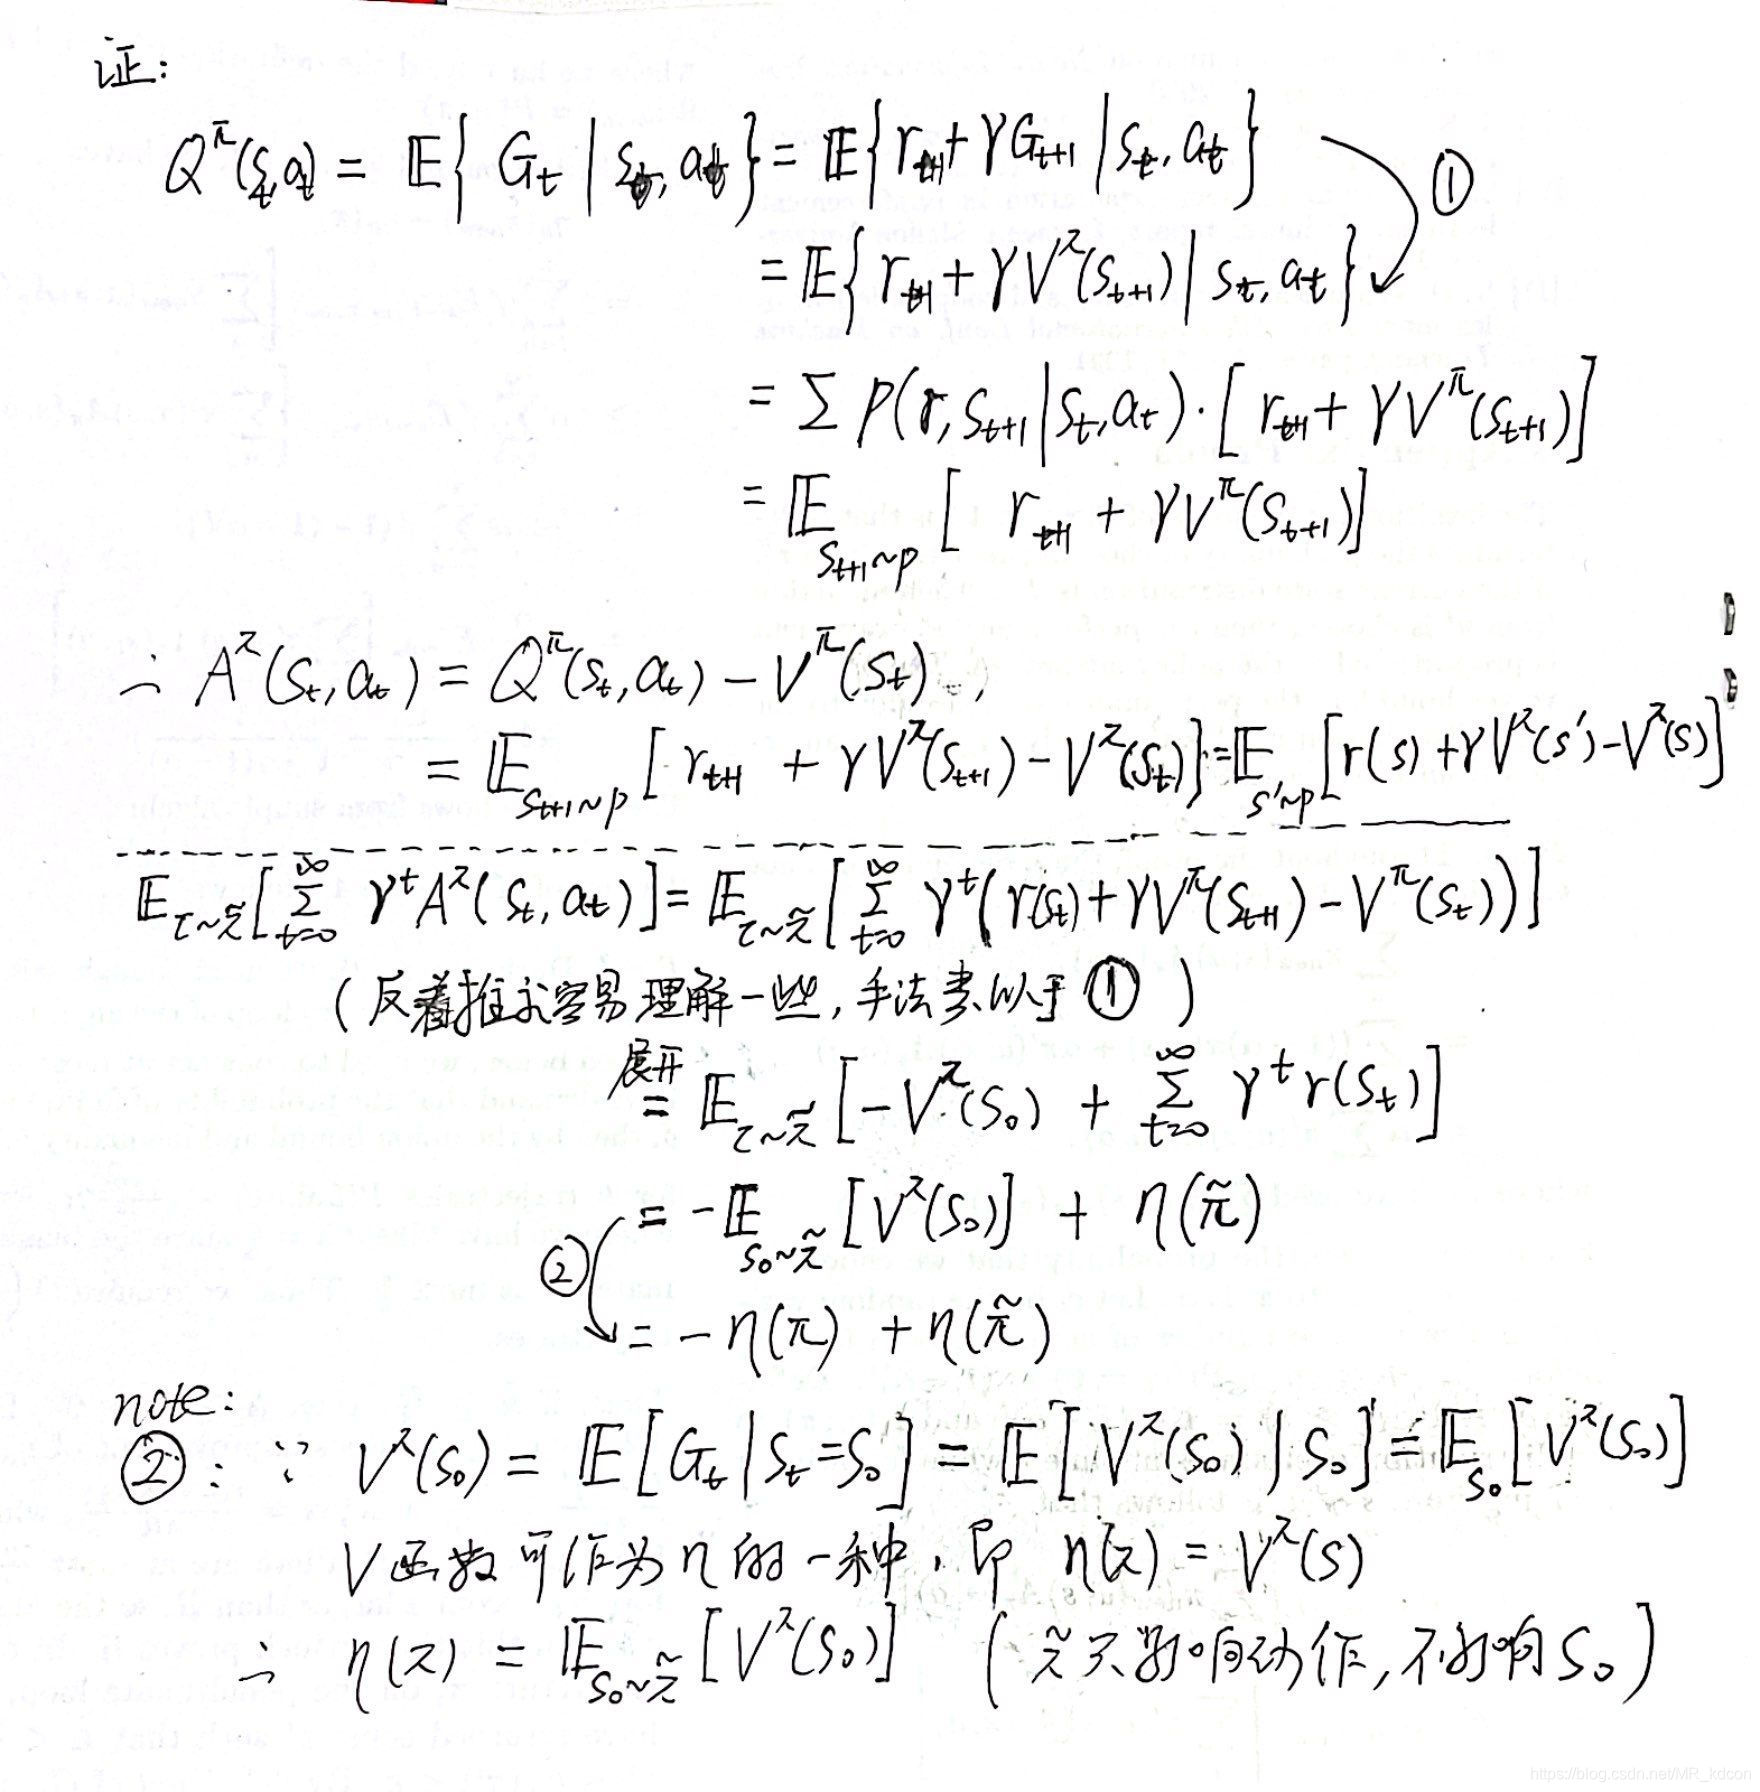 证:
Q^π(s_t,a_t) = 𝔼{ G_t | s_t, a_t } = 𝔼{ r_{t+1} + γG_{t+1} | s_t, a_t } ①
= 𝔼{ r_{t+1} + γV^π(s_{t+1}) | s_t, a_t }
= Σ p(r, s_{t+1} | s_t, a_t) · [ r_{t+1} + γV^π(s_{t+1}) ]
= 𝔼_{s_{t+1}~p} [ r_{t+1} + γV^π(s_{t+1}) ]
∴ A^π(s_t, a_t) = Q^π(s_t, a_t) − V^π(s_t)
= 𝔼_{s_{t+1}~p} [ r_{t+1} + γV^π(s_{t+1}) − V^π(s_t) ] = 𝔼_{s'~p} [ r(s) + γV^π(s') − V^π(s) ]
𝔼_{τ~π̃} [ Σ_{t=0}^∞ γ^t A^π(s_t, a_t) ] = 𝔼_{τ~π̃} [ Σ_{t=0}^∞ γ^t ( r(s_t) + γV^π(s_{t+1}) − V^π(s_t) ) ]
( 反着推式容易理解一些, 手法类似于 ① )
展开
= 𝔼_{τ~π̃} [ −V^π(s_0) + Σ_{t=0}^∞ γ^t r(s_t) ]
= −𝔼_{s_0~π̃} [ V^π(s_0) ] + η(π̃)
② = −η(π) + η(π̃)
note:
②: ∵ V^π(s_0) = 𝔼[ G_t | S_t = S_0 ] = 𝔼[ V^π(s_0) | S_0 ] = 𝔼_{s_0} [ V^π(s_0) ]
V函数可作为η的一种, 即 η(π) = V^π(s)
∴ η(π) = 𝔼_{s_0~π̃} [ V^π(s_0) ] ( π̃只影响动作, 不影响S_0 )
https://blog.csdn.net/MR_kdcon